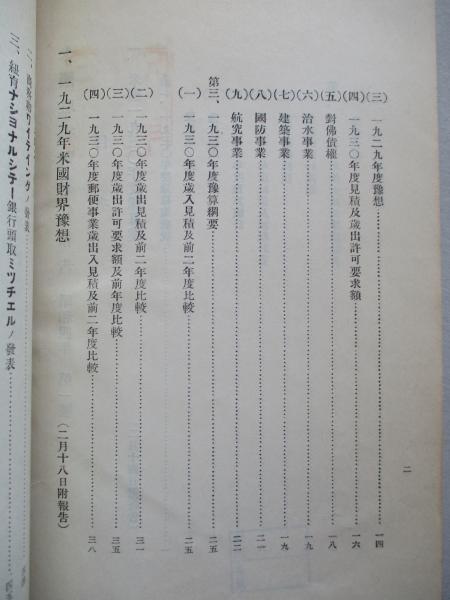 二
(三) 一九二九年度豫想……一四
(四) 一九三〇年度見積及歳出許可要求額……一六
(五) 對佛債權……一八
(六) 治水事業……一九
(七) 建築事業……一九
(八) 國防事業……二一
(九) 航究事業……二二
第三、一九三〇年度豫算綱要……二五
(一) 一九三〇年度歳入見積及前二年度比較……二五
(二) 一九三〇年度歳出見積及前二年度比較……三一
(三) 一九三〇年度歳出許可要求額及前年度比較……三五
(四) 一九三〇年度郵便事業歳出入見積及前二年度比較……三八
一、一九二九年米國財界豫想(二月十八日附報告)
ノ發表
三、紐育ナショナルシテー銀行頭取ミッチェルノ發表